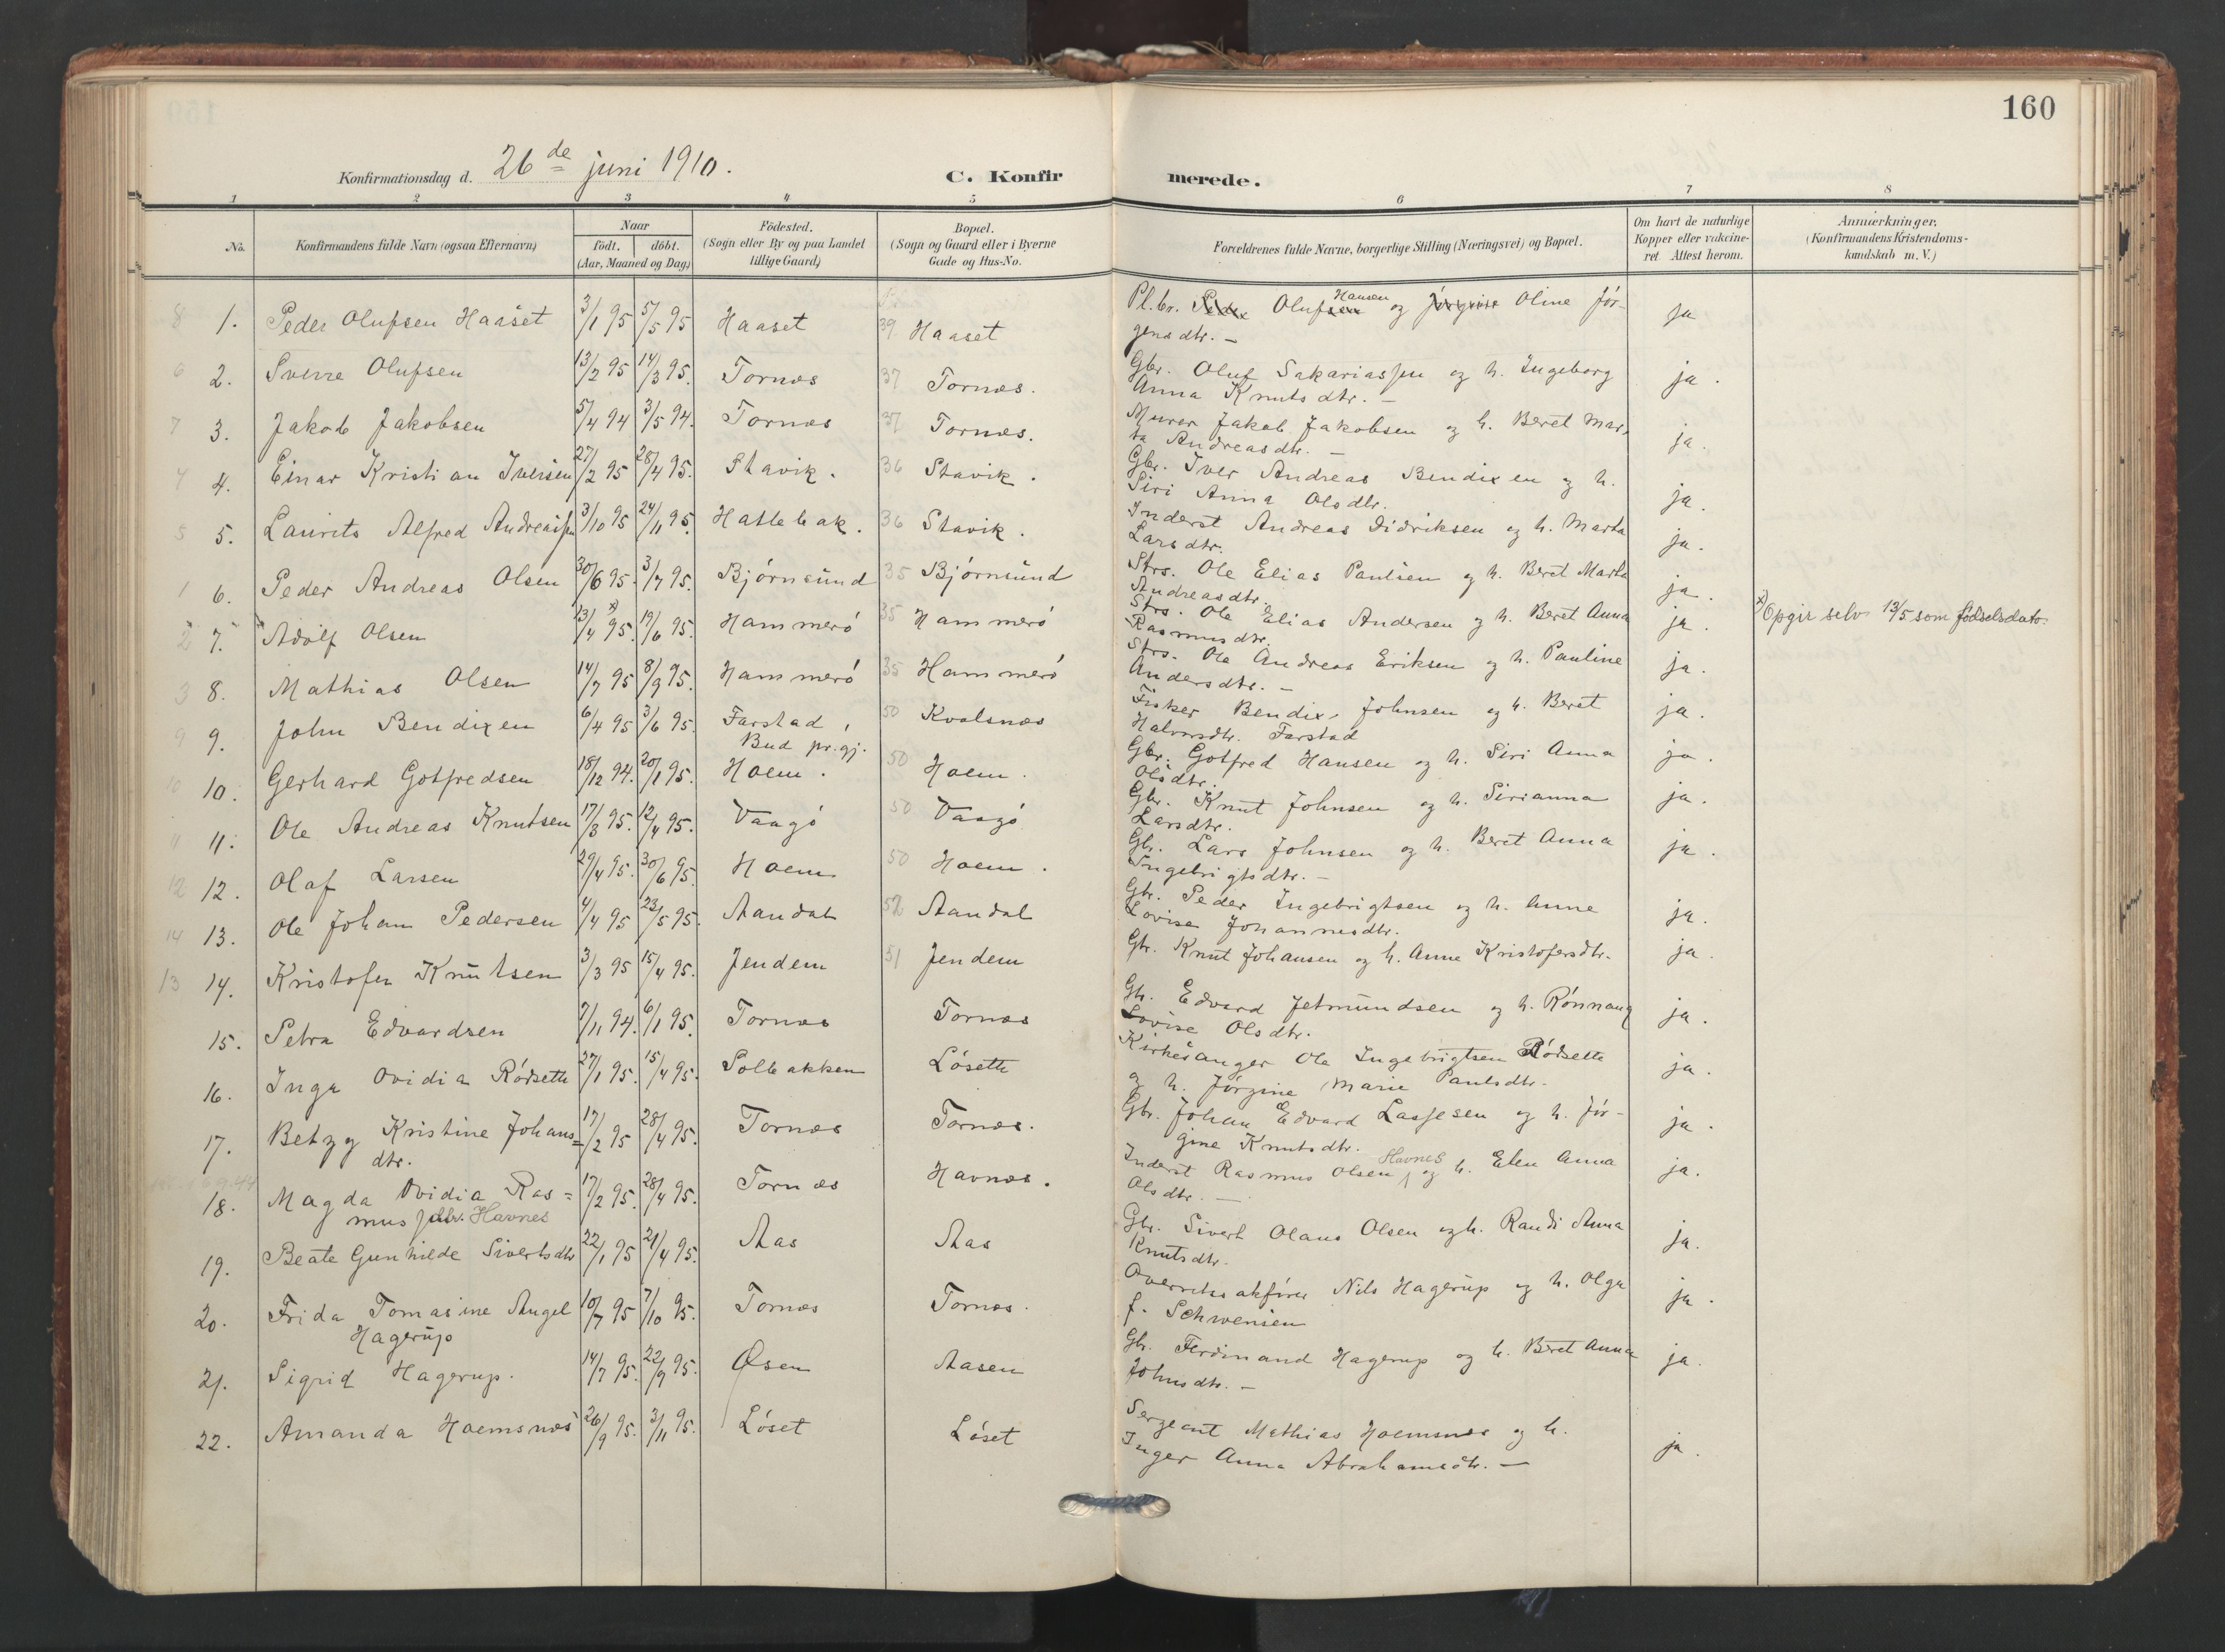 160
Konfirmationsdag d. 26de juni 1910.
C. Konfirmerede.
1 2 3 4 5 6 7 8
No.
Konfirmandens fulde Navn (ogsaa Efternavn)
Naar
födt. döbt.
(Aar, Maaned og Dag)
Födested.
(Sogn eller By og paa Landet
tillige Gaard)
Bopæl.
(Sogn og Gaard eller i Byerne
Gade og Hus-No.
Forældrenes fulde Navne, borgerlige Stilling (Næringsvei) og Bopæl.
Om havt de naturlige
Kopper eller vakcine-
ret. Attest herom.
Anmærkninger,
(Konfirmandens Kristendoms-
kundskab m. V.)
8 1. Peder Olufsen Haaset 3/1 95 5/5 95 Haaset 39 Haaset Pl.br. Peder Olufsen Hansen og Jørgine Oline Jör-
gensdtr. — ja
6 2. Sverre Olufsen 13/2 95 14/3 95. Tornes 37 Tornæs. Gbr. Oluf Sakariassen og h. Ingeborg
Anna Knutsdtr. — ja.
7 3. Jakob Jakobsen 5/4 94 3/5 94. Tornæs 37 Tornæs. Murer Jakob Jakobsen og h. Beret Mar-
ta Andreasdtr. — ja.
4 4. Einar Kristian Iversen 27/2 95 28/4 95. Stavik. 36 Stavik. Gbr. Iver Andreas Bendixen og h.
Siri Anna Olsdtr. ja.
5 5. Laurits Alfred Andreassen 3/10 95 24/11 95. Hatlebak. 36 Stavik. Inderst Andreas Didriksen og h. Marta
Larsdtr. ja.
1 6. Peder Andreas Olsen 30/6 95. 3/7 95. Björnsund 35 Björnsund Strs. Ole Elias Paulsen og h. Beret Marta
Andreasdtr. ja.
2 7. Adolf Olsen 13/4 x) 95. 19/6 95. Hammerö 35 Hammerö Strs. Ole Elias Andersen og h. Beret Anna
Rasmusdtr. ja. x) Opgir selv 13/5 som fødselsdato.
3 8. Mathias Olsen 14/7 95 8/9 95. Hammerö 35 Hammerö Strs. Ole Andreas Eriksen og h. Pauline
Andersdtr. — ja.
9 9. John Bendixen 6/4 95 3/6 95. Farstad, Bud pr.gj. 50 Kvalsnæs Fisker Bendix Johnsen og h. Beret
Halvorsdtr. Farstad ja.
10 10. Gerhard Gotfredsen 18/12 94. 20/1 95. Hoem. 50 Hoem. Gbr. Gotfred Hansen og h. Siri Anna
Olsdtr. ja.
11 11. Ole Andreas Knutsen 17/3 95. 12/4 95. Vaagö 50 Vaagö Gbr. Knut Johnsen og h. Sirianna
Larsdtr. ja.
12 12. Olaf Larsen 29/4 95. 30/6 95. Hoem 50 Hoem. Gbr. Lars Johnsen og h. Beret Anna
Ingebrigtsdtr. — ja.
14 13. Ole Johan Pedersen 4/4 95 23/5 95. Aandal 52 Aandal Gbr. Peder Ingebrigtsen og h. Anne
Lovise Johannesdtr. ja.
13 14. Kristofer Knutsen 3/3 95 15/4 95. Jendem 51 Jendem Gbr. Knut Johansen og h. Anne Kristofersdtr. ja.
15. Petra Edvardsen 7/11 94. 6/1 95. Tornæs Tornæs Gbr. Edvard Jetmundsen og h. Rönnaug
Lovise Olsdtr. ja.
16. Inga Ovidia Rödseth 27/1 95. 15/4 95. Solbakken Löseth Kirkesanger Ole Ingebrigtsen Rödseth
og h. Jörgine Marie Paulsdtr. ja.
17. Betzy Kristine Johans=
dtr. 17/2 95 28/4 95. Tornæs Tornæs. Gbr. Johan Edvard Lassesen og h. Jör-
gine Knutsdtr. ja.
18. Magda Ovidia Ras=
musdtr. Havnes 17/2 95. 28/4 95. Tornæs Havnæs. Inderst Rasmus Olsen Havnes og h. Elen Anna
Olsdtr. — ja.
19. Beate Gunhilde Sivertsdtr 22/1 95 21/4 95. Aas Aas Gbr. Sivert Olaus Olsen og h. Randi Anna
Knutsdtr. ja.
20. Frida Tomasine Angel
Hagerup 10/7 95 7/10 95. Tornæs Tornæs. Overretssakförer Nils Hagerup og h. Olga
f. Schwensen ja.
21. Sigrid Hagerup. 14/7 95. 22/9 95. Øsen Aasen Gbr. Ferdinand Hagerup og h. Beret Anna
Johnsdtr. — ja.
22. Amanda Hoemsnæs 26/9 95. 3/11 95. Löset Löset Sergeant Mathias Hoemsnæs og h.
Inger Anna Abrahamsdtr. — ja.